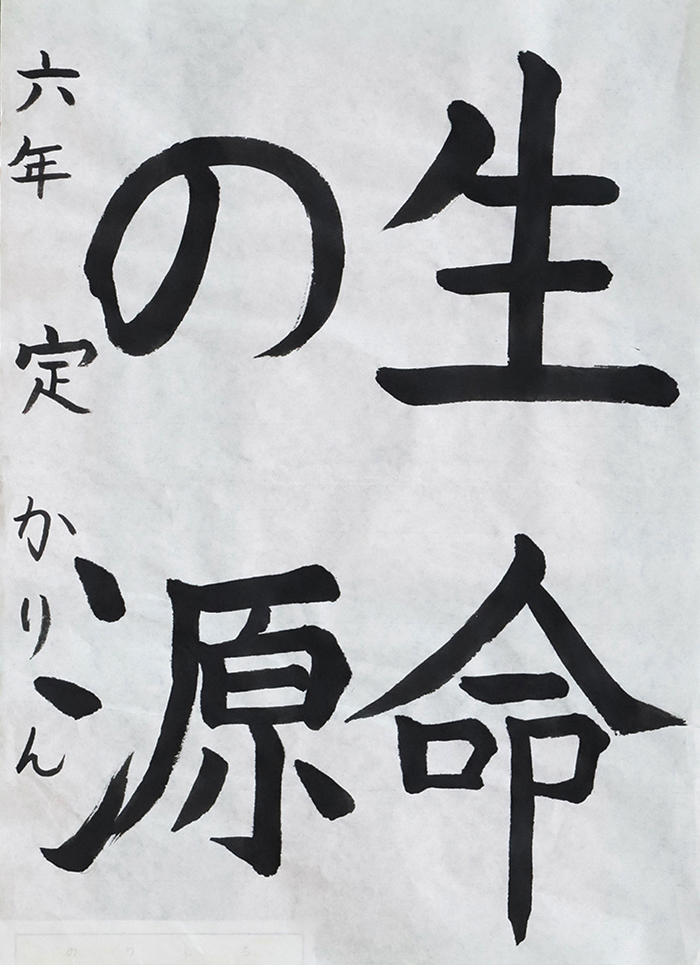 生命
の源
六年 定 かりん